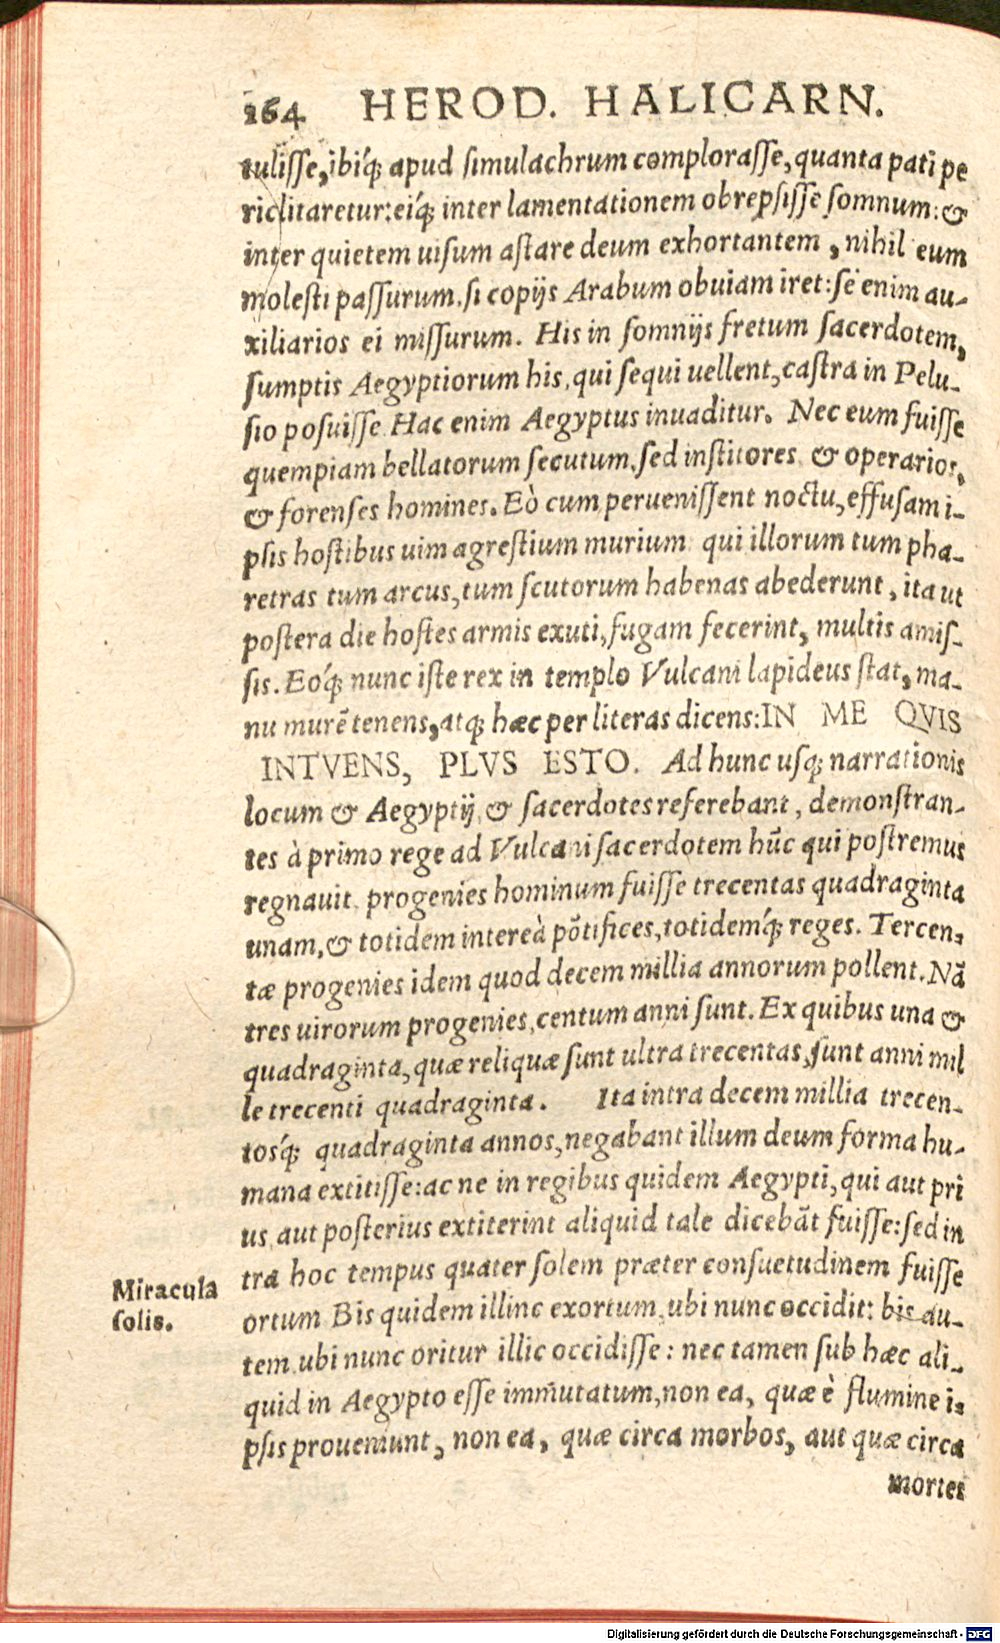 264 HEROD. HALICARN.
tulisse, ibiq́; apud simulachrum complorasse, quanta pati pe
riclitaretur: eiq́; inter lamentationem obrepsisse somnum: &
inter quietem uisum astare deum exhortantem, nihil eum
molesti passurum, si copijs Arabum obuiam iret: se enim au-
xiliarios ei missurum. His in somnijs fretum sacerdotem,
sumptis Aegyptiorum his, qui sequi uellent, castra in Pelu-
sio posuisse. Hac enim Aegyptus inuaditur. Nec eum fuisse
quempiam bellatorum secutum, sed institores, & operarios,
& forenses homines. Eò cum peruenissent noctu, effusam i-
psis hostibus uim agrestium murium qui illorum tum pha-
retras tum arcus, tum scutorum habenas abederunt, ita ut
postera die hostes armis exuti, fugam fecerint, multis amis-
sis. Eoq́; nunc iste rex in templo Vulcani lapideus stat, ma-
nu murē tenens, atq; hæc per literas dicens: IN ME QVIS
INTVENS, PLVS ESTO. Ad hunc usq; narrationis
locum & Aegyptij, & sacerdotes referebant, demonstran-
tes à primo rege ad Vulcani sacerdotem hūc qui postremus
regnauit, progenies hominum fuisse trecentas quadraginta
unam, & totidem intereà pōtifices, totidemq́; reges. Tercen-
tæ progenies idem quod decem millia annorum pollent. Nā
tres uirorum progenies, centum anni sunt. Ex quibus una &
quadraginta, quæ reliquæ sunt ultra trecentas, sunt anni mil
le trecenti quadraginta. Ita intra decem millia trecen-
tosq́; quadraginta annos, negabant illum deum forma hu-
mana extitisse: ac ne in regibus quidem Aegypti, qui aut pri
us, aut posterius extiterint aliquid tale dicebāt fuisse: sed in
tra hoc tempus quater solem præter consuetudinem fuisse
Miracula
solis.
ortum Bis quidem illinc exortum, ubi nunc occidit: bis au-
tem, ubi nunc oritur illic occidisse: nec tamen sub hæc ali-
quid in Aegypto esse immutatum, non ea, quæ è flumine i-
psis proueniunt, non ea, quæ circa morbos, aut quæ circa
mortes
Digitalisierung gefördert durch die Deutsche Forschungsgemeinschaft - DFG